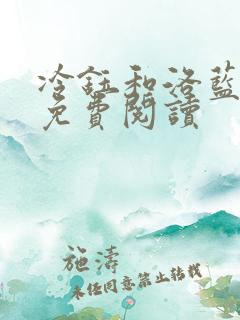 冷鈺和洛藍
免費閱讀
施濤
未经同意禁止转载